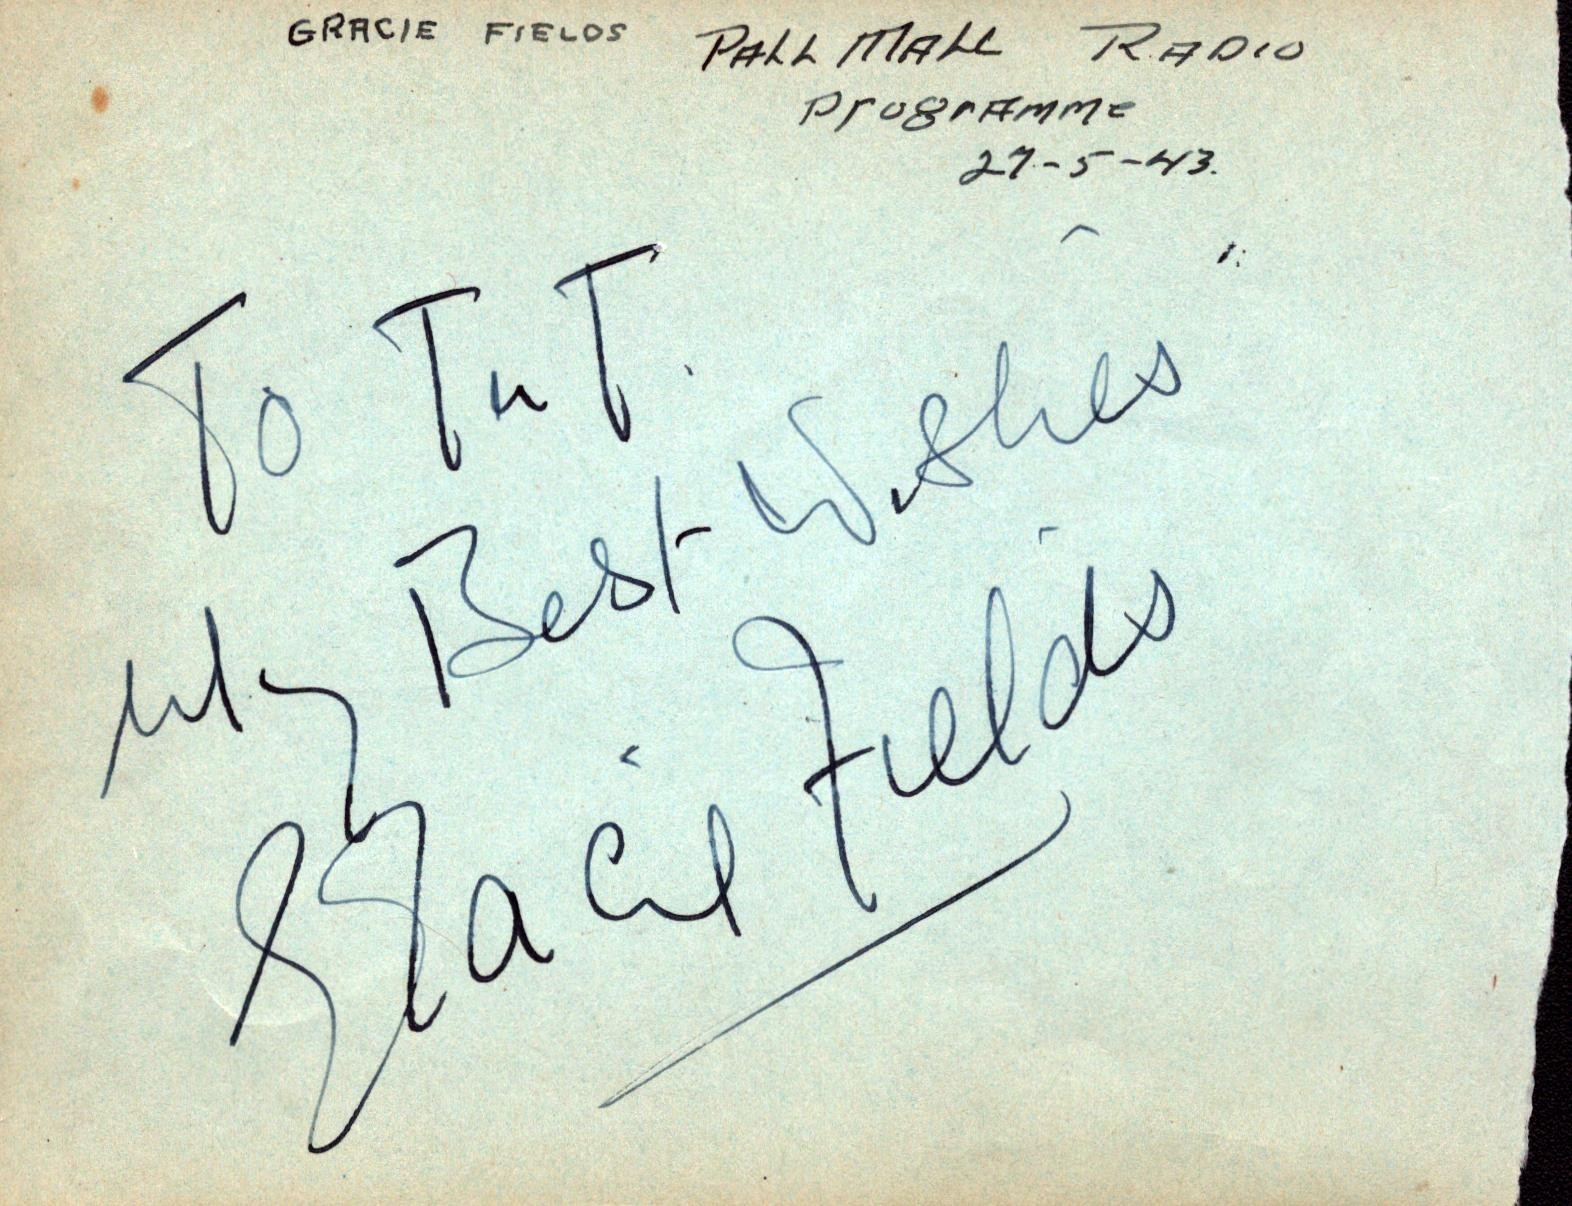 GRACIE FIELDS PALL MALL RADIO
Programme
27-5-43.
To TnT.
My Best Wishes
Gracie Fields